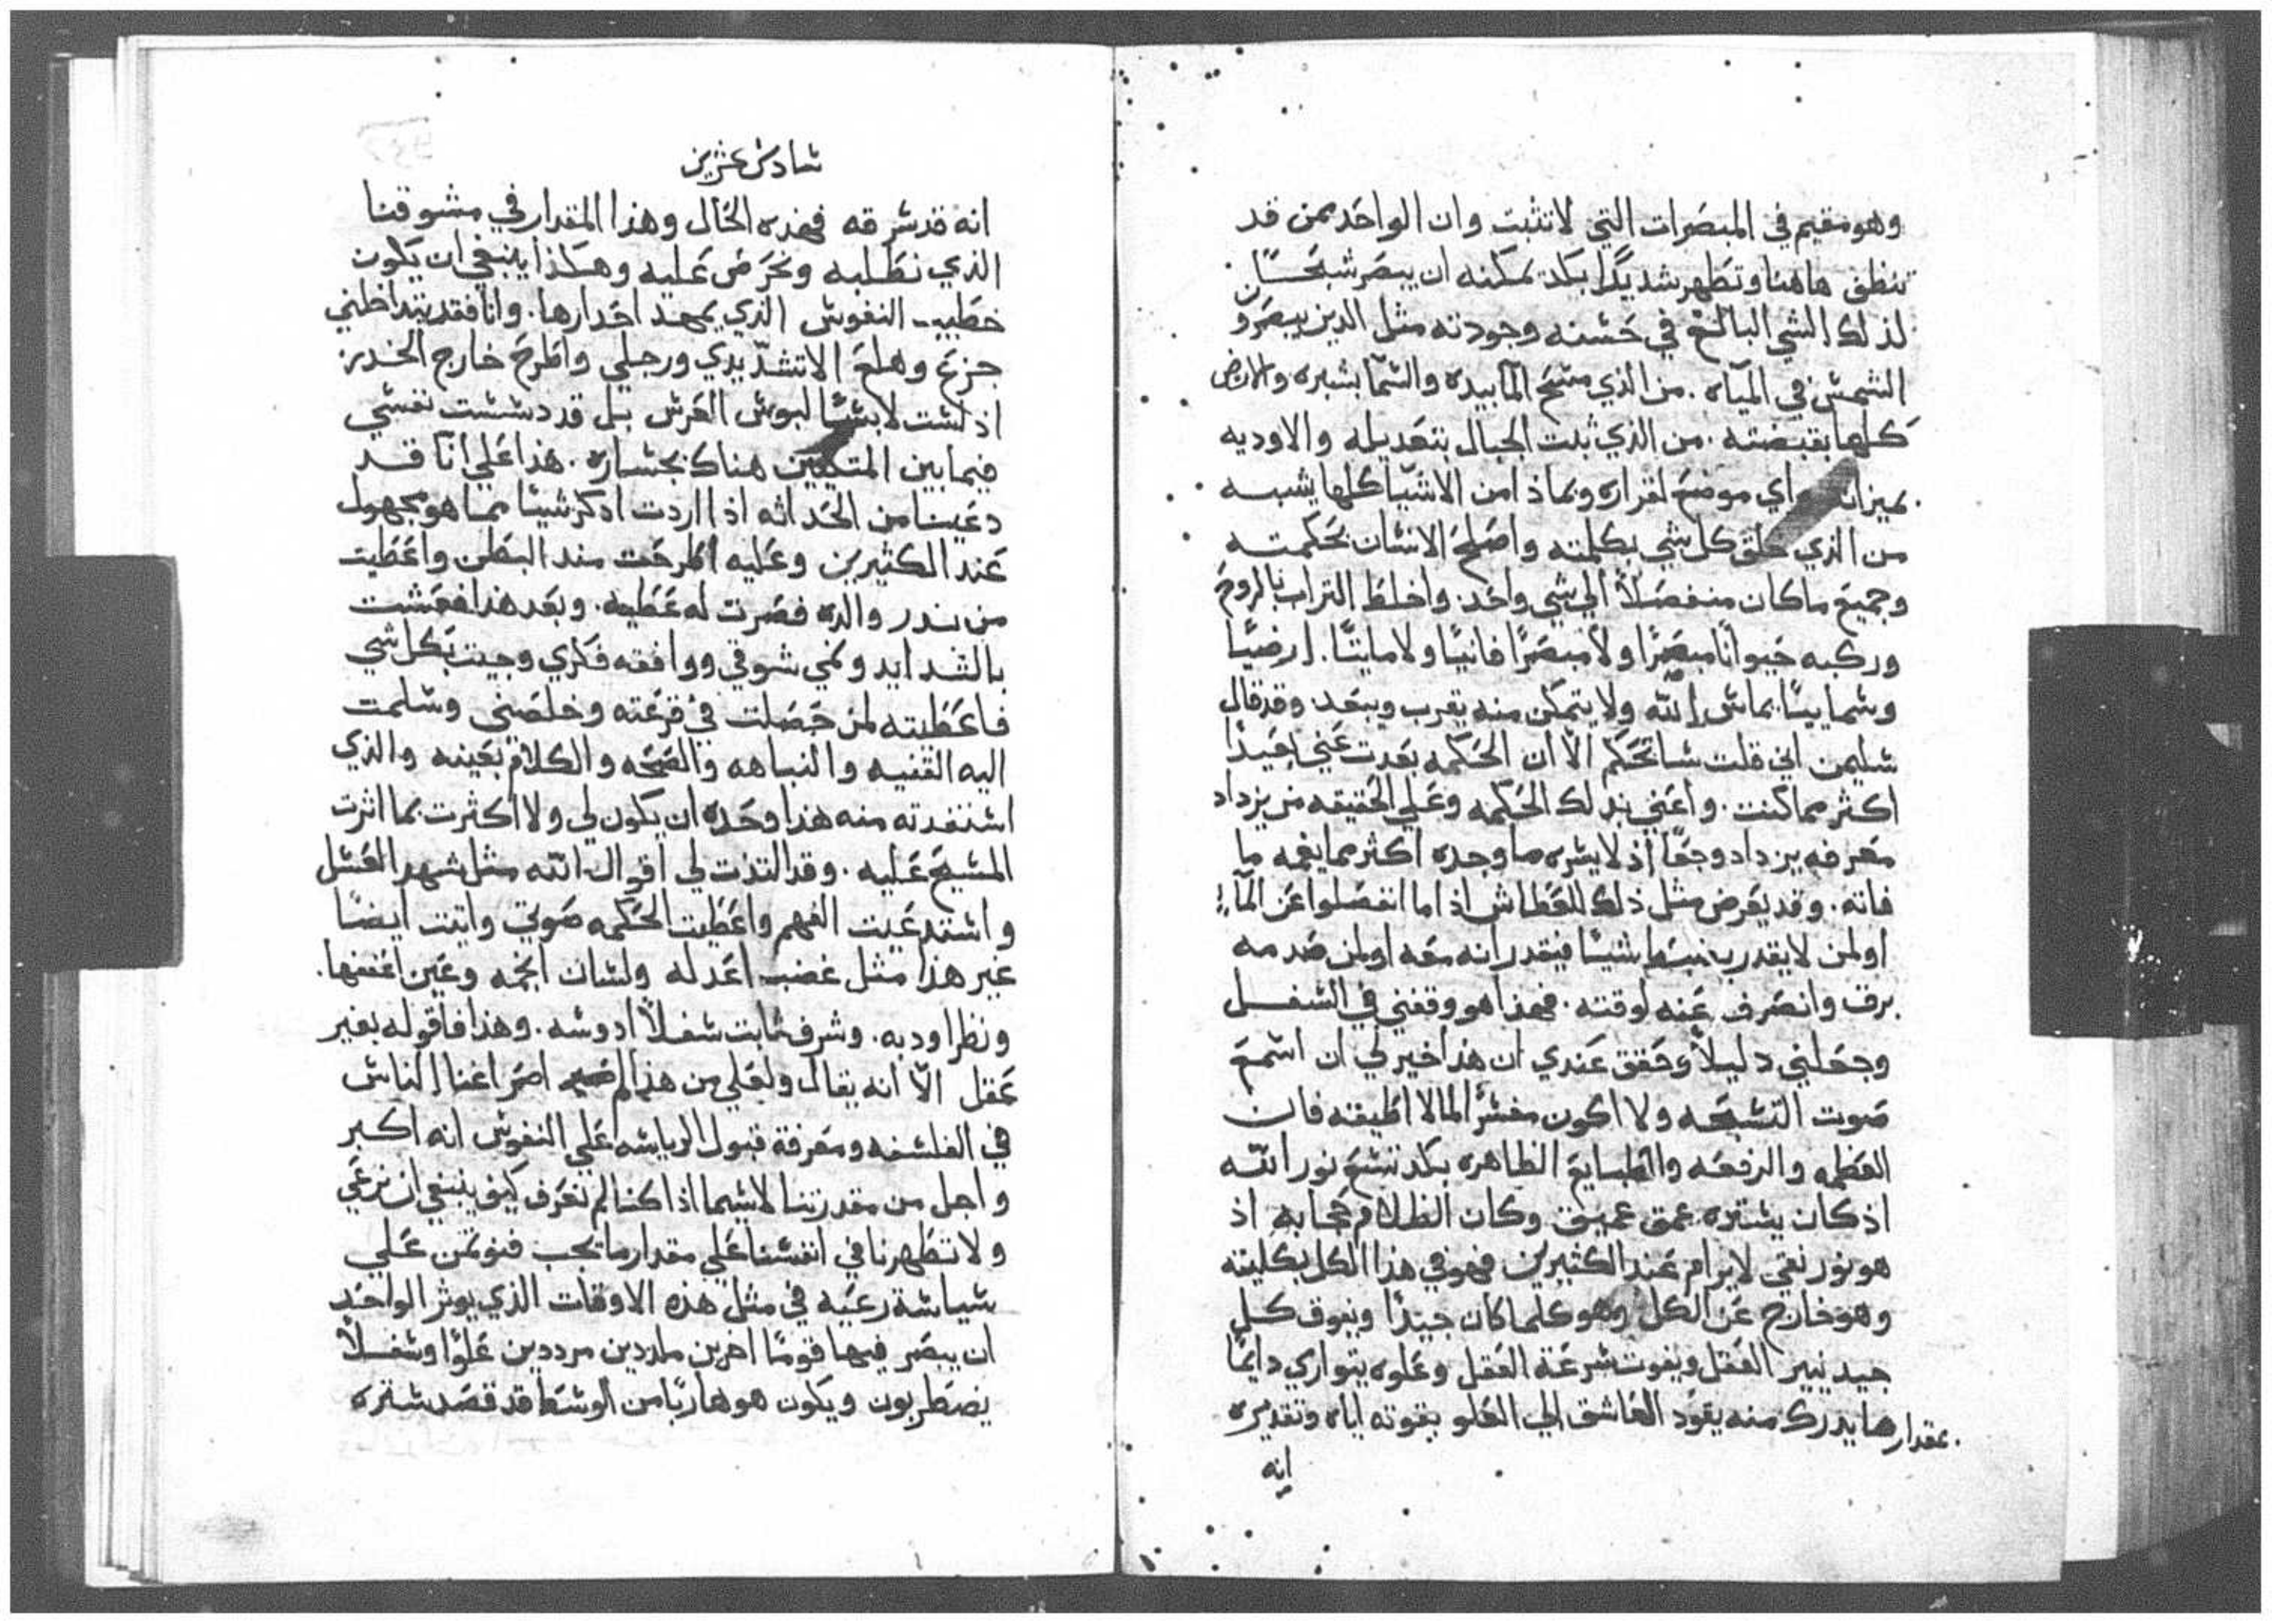 وهو مقيم في المبصرات التي لا تثبت وان الواحد ممن قد
تنظف هاهنا وتطهر شديدًا بكد تمكنه ان يبصر شبحًا
لذلك الشي البالغ في حسنه وجودته مثل الذين يبصرو
الشمس في المياه . من الذي مسح الما بيده والسما بشبره والارض
كلها بقبضته . من الذي ثبت الجبال بتعديله والاوديه
بميزان واي موضع لقراره وبماذا من الاشيا كلها يشبه
من الذي خلق كل شي بكلمته واصلح الانسان بحكمته
وجميع ما كان منفصلاً الي شي واحد . واخلط التراب بالروح
وركبه حيوانًا مبصرًا ولا مبصرًا فانيًا ولا مايتًا . ارضيًا
وسماييًا يماس الله ولا يتمكن منه يقرب ويبعد وقد قال
سليمن اني قلت ساتحكم الا ان الحكمه بعدت عني بعيدًا
اكثر مما كنت . واعني بذلك الحكمه وعلي الحقيقه من يزداد
معرفه يزداد وجعًا اذ لا يسره ما وجده اكثر مما يغمه ما
فاته . وقد يعرض مثل ذلك للعطاش اذا ما انفصلوا عن الماء
او لمن لا يقدر يضبط شيًا فيقدر انه معه او لمن صدمه
برق وانصرف عنه لوقته . فهذا هو وقفني في السفل
وجعلني دليلاً وحقق عندي ان هذا خير لي ان اسمع
صوت التسبحه ولا اكون مفسرًا لما لا اطيقه فان
العظمه والرفعه والطبايع الظاهره بكد تسع نور الله
اذ كان يستره عمق عميق وكان الظلام حجابه اذ
هو نور نقي لا يرام عند الكثيرين فهو في هذا الكل بكليته
وهو خارج عن الكل وهو كلما كان جيدًا ويفوق كل
جيد نيير العقل ويفوت سرعة العقل وعلوه يتواري دايمًا
بمقدار ما يدرك منه يقود العاشق الي العلو بفوته اياه وتقديره
انه
سادس عشرين
انه قد سرقه فهذه الحال وهذا المقدار في مشوقنا
الذي نطلبه ونحرص عليه وهكذا ينبغي ان يكون
خطيب النفوس الذي يمهد اخدارها . وانا فقد يتداخلني
جزع وهلع الا تشد يدي ورجلي واطرح خارج الخدر
اذ لست لابسًا لبوس العرس بل قد دسست نفسي
فيما بين المتكيين هناك بجساره . هذا علي انا قد
دعينا من الحداثه اذا اردت اذكر شيئًا مما هو مجهول
عند الكثيرين وعليه اطرحت منذ البطن واعطيت
من نذر والده فصرت له عطيه . وبعد هذا فعشت
بالشدايد ونمي شوقي ووافقه فكري وجيت بكل شي
فاعطيته لمن حصلت في قرعته وخلصني وسلمت
اليه القنيه والنباهه والصحه والكلام بعينه والذي
استفدته منه هذا وحده ان يكون لي ولا اكثرت بما اثرت
المسيح عليه . وقد التذت لي اقوال الله مثل شهد العسل
واستدعيت الفهم واعطيت الحكمه صوتي واتيت ايضًا
غير هذا مثل غضب اعدله ولسان الجمه وعين اغضها .
ونظرا ودبه . وشرف ثابت سفلاً ادوسه . وهذا فاقوله بغير
عقل الا انه يقال ولعلي من هذا لم اصر اغنا الناس
في الفلسفه ومعرفة قبول الرياسه علي النفوس انه اكبر
واجل من مقدرتنا لا سيما اذا كنا لم نعرف كيف ينبغي ان نرعي
ولا تطهرنا في انفسنا علي مقدار ما يجب فنوتمن علي
سياسة رعيه في مثل هذه الاوقات الذي يوثر الواحد
ان يبصر فيها قومًا اخرين ماردين مرددين علوًا وسفلاً
يضطربون ويكون هو هاربًا من الوسط قد قصد ستره